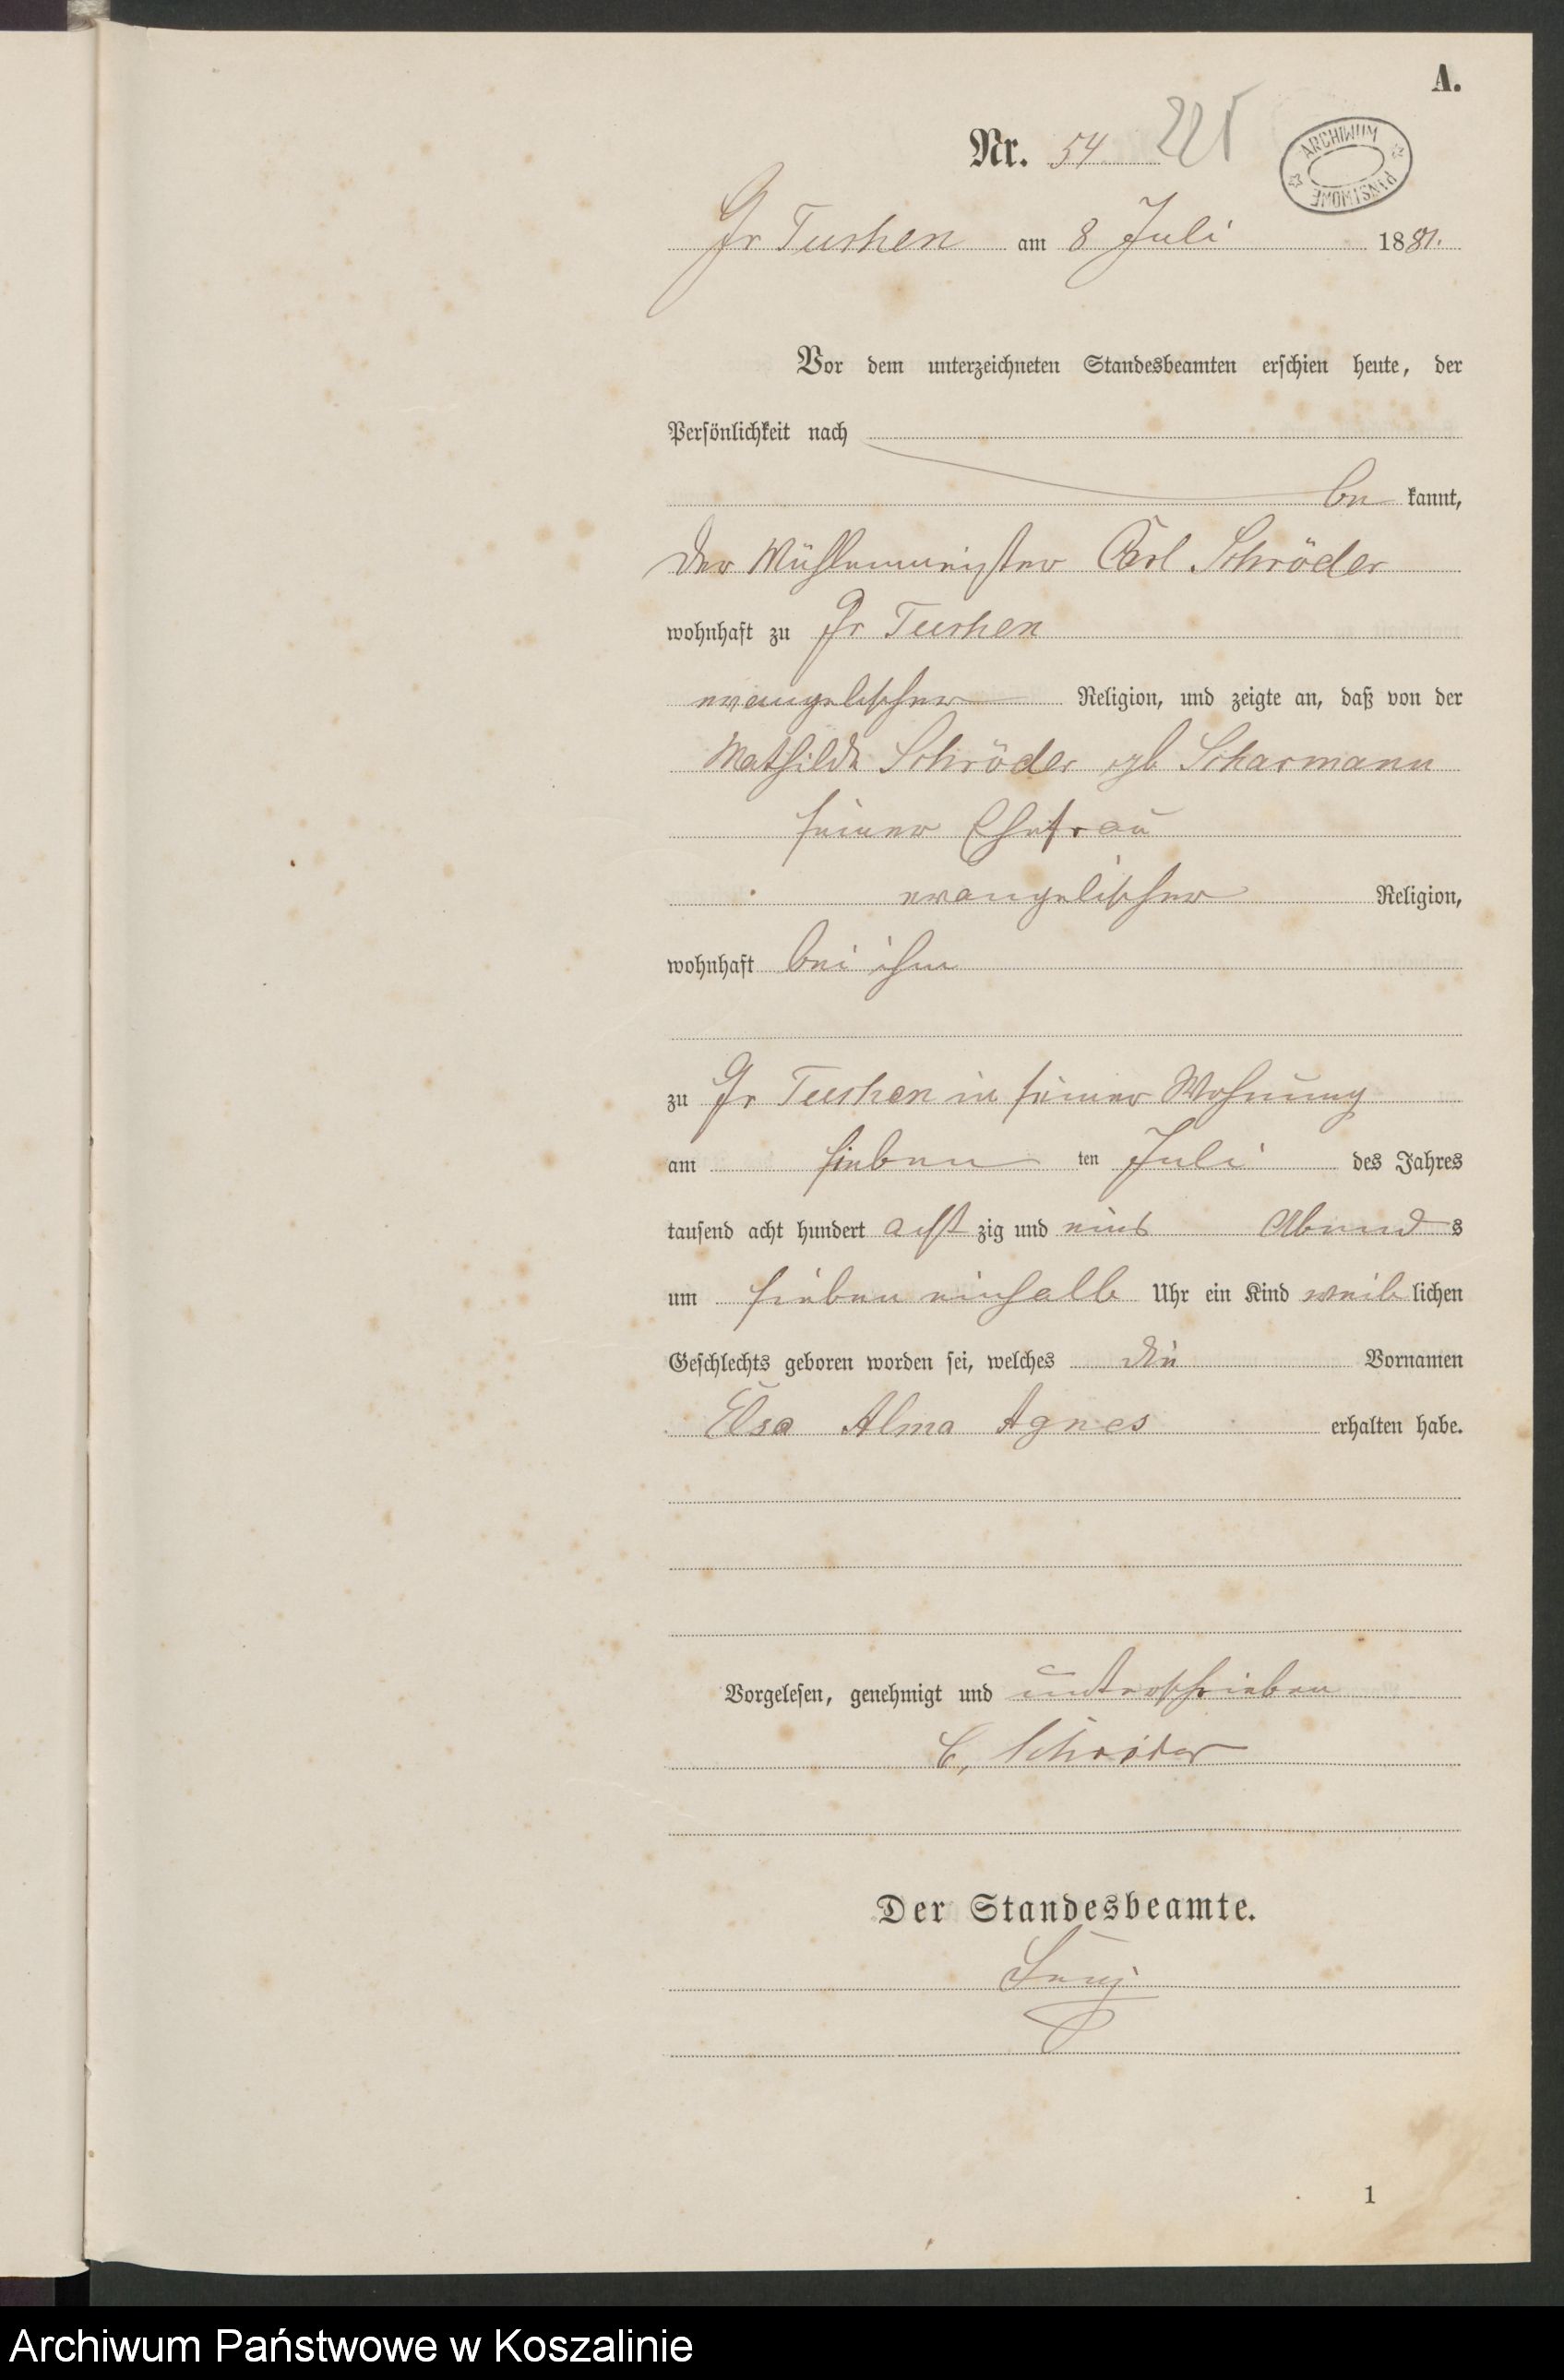 A.
Nr. 54 225
ARCHIWUM PAŃSTWOWE
Gr Tuchen am 8 Juli 1881.
Vor dem unterzeichneten Standesbeamten erschien heute, der
Persönlichkeit nach
be kannt,
der Mühlenmeister Carl Schröder
wohnhaft zu Gr Tuchen
evangelischer Religion, und zeigte an, daß von der
Mathilde Schröder geb Scharmann
seiner Ehefrau
evangelischer Religion,
wohnhaft bei ihm
zu Gr Tuchen in seiner Wohnung
am sieben ten Juli des Jahres
tausend acht hundert acht zig und eins Abend s
um sieben einhalb Uhr ein Kind weib lichen
Geschlechts geboren worden sei, welches die Vornamen
Elsa Alma Agnes erhalten habe.
Vorgelesen, genehmigt und unterschrieben
C. Schröder
Der Standesbeamte.
1
Archiwum Państwowe w Koszalinie